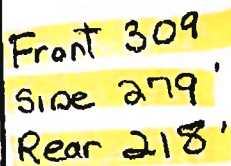 Front 309
Side 279'
Rear 218'